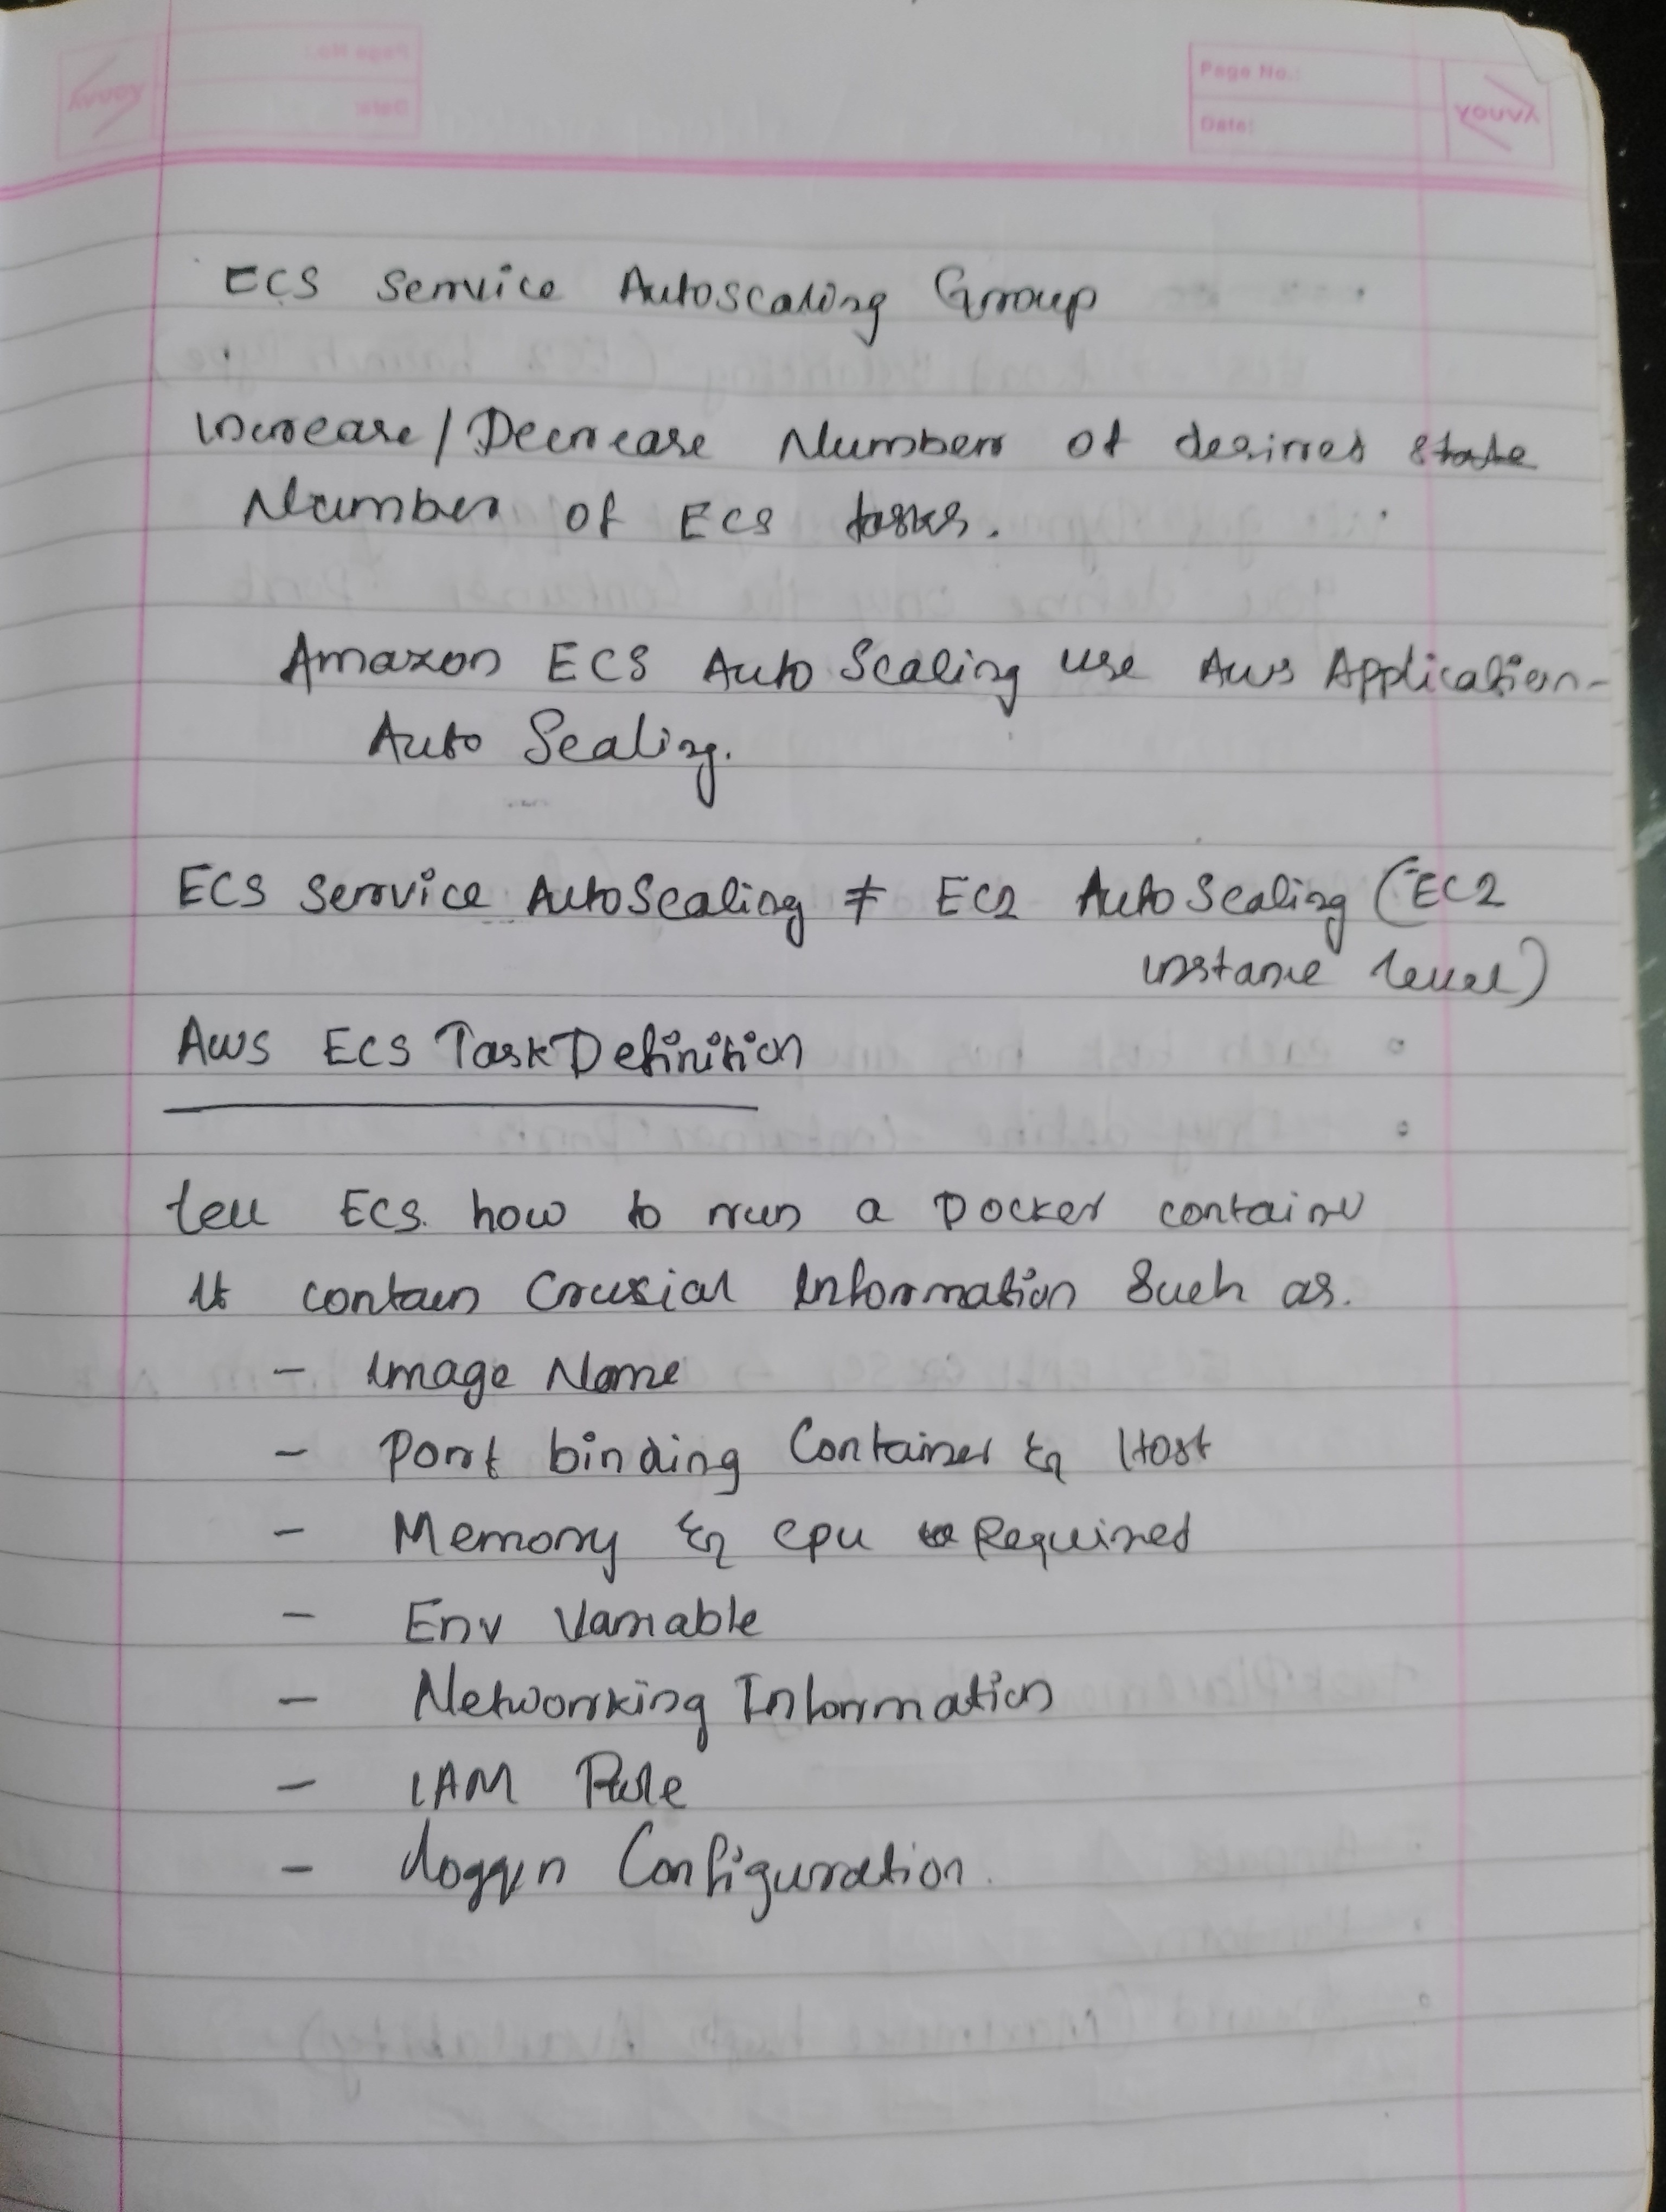 Page No.:
Date:
YOUVA
ECS Service Autoscaling Group
Increase/Decrease Number of desired state
Number of ECS tasks.
Amazon ECS Auto Scaling use Aws Application-
Auto Scaling.
ECS Service AutoScaling ≠ EC2 Auto Scaling (EC2
instance level)
Aws ECS Task Definition
tell ECS how to run a Docker container
It contain Crusial Information Such as.
- Image Name
- Port binding Container & Host
- Memory & cpu Required
- Env Variable
- Networking Information
- IAM Role
- Loggin Configuration.